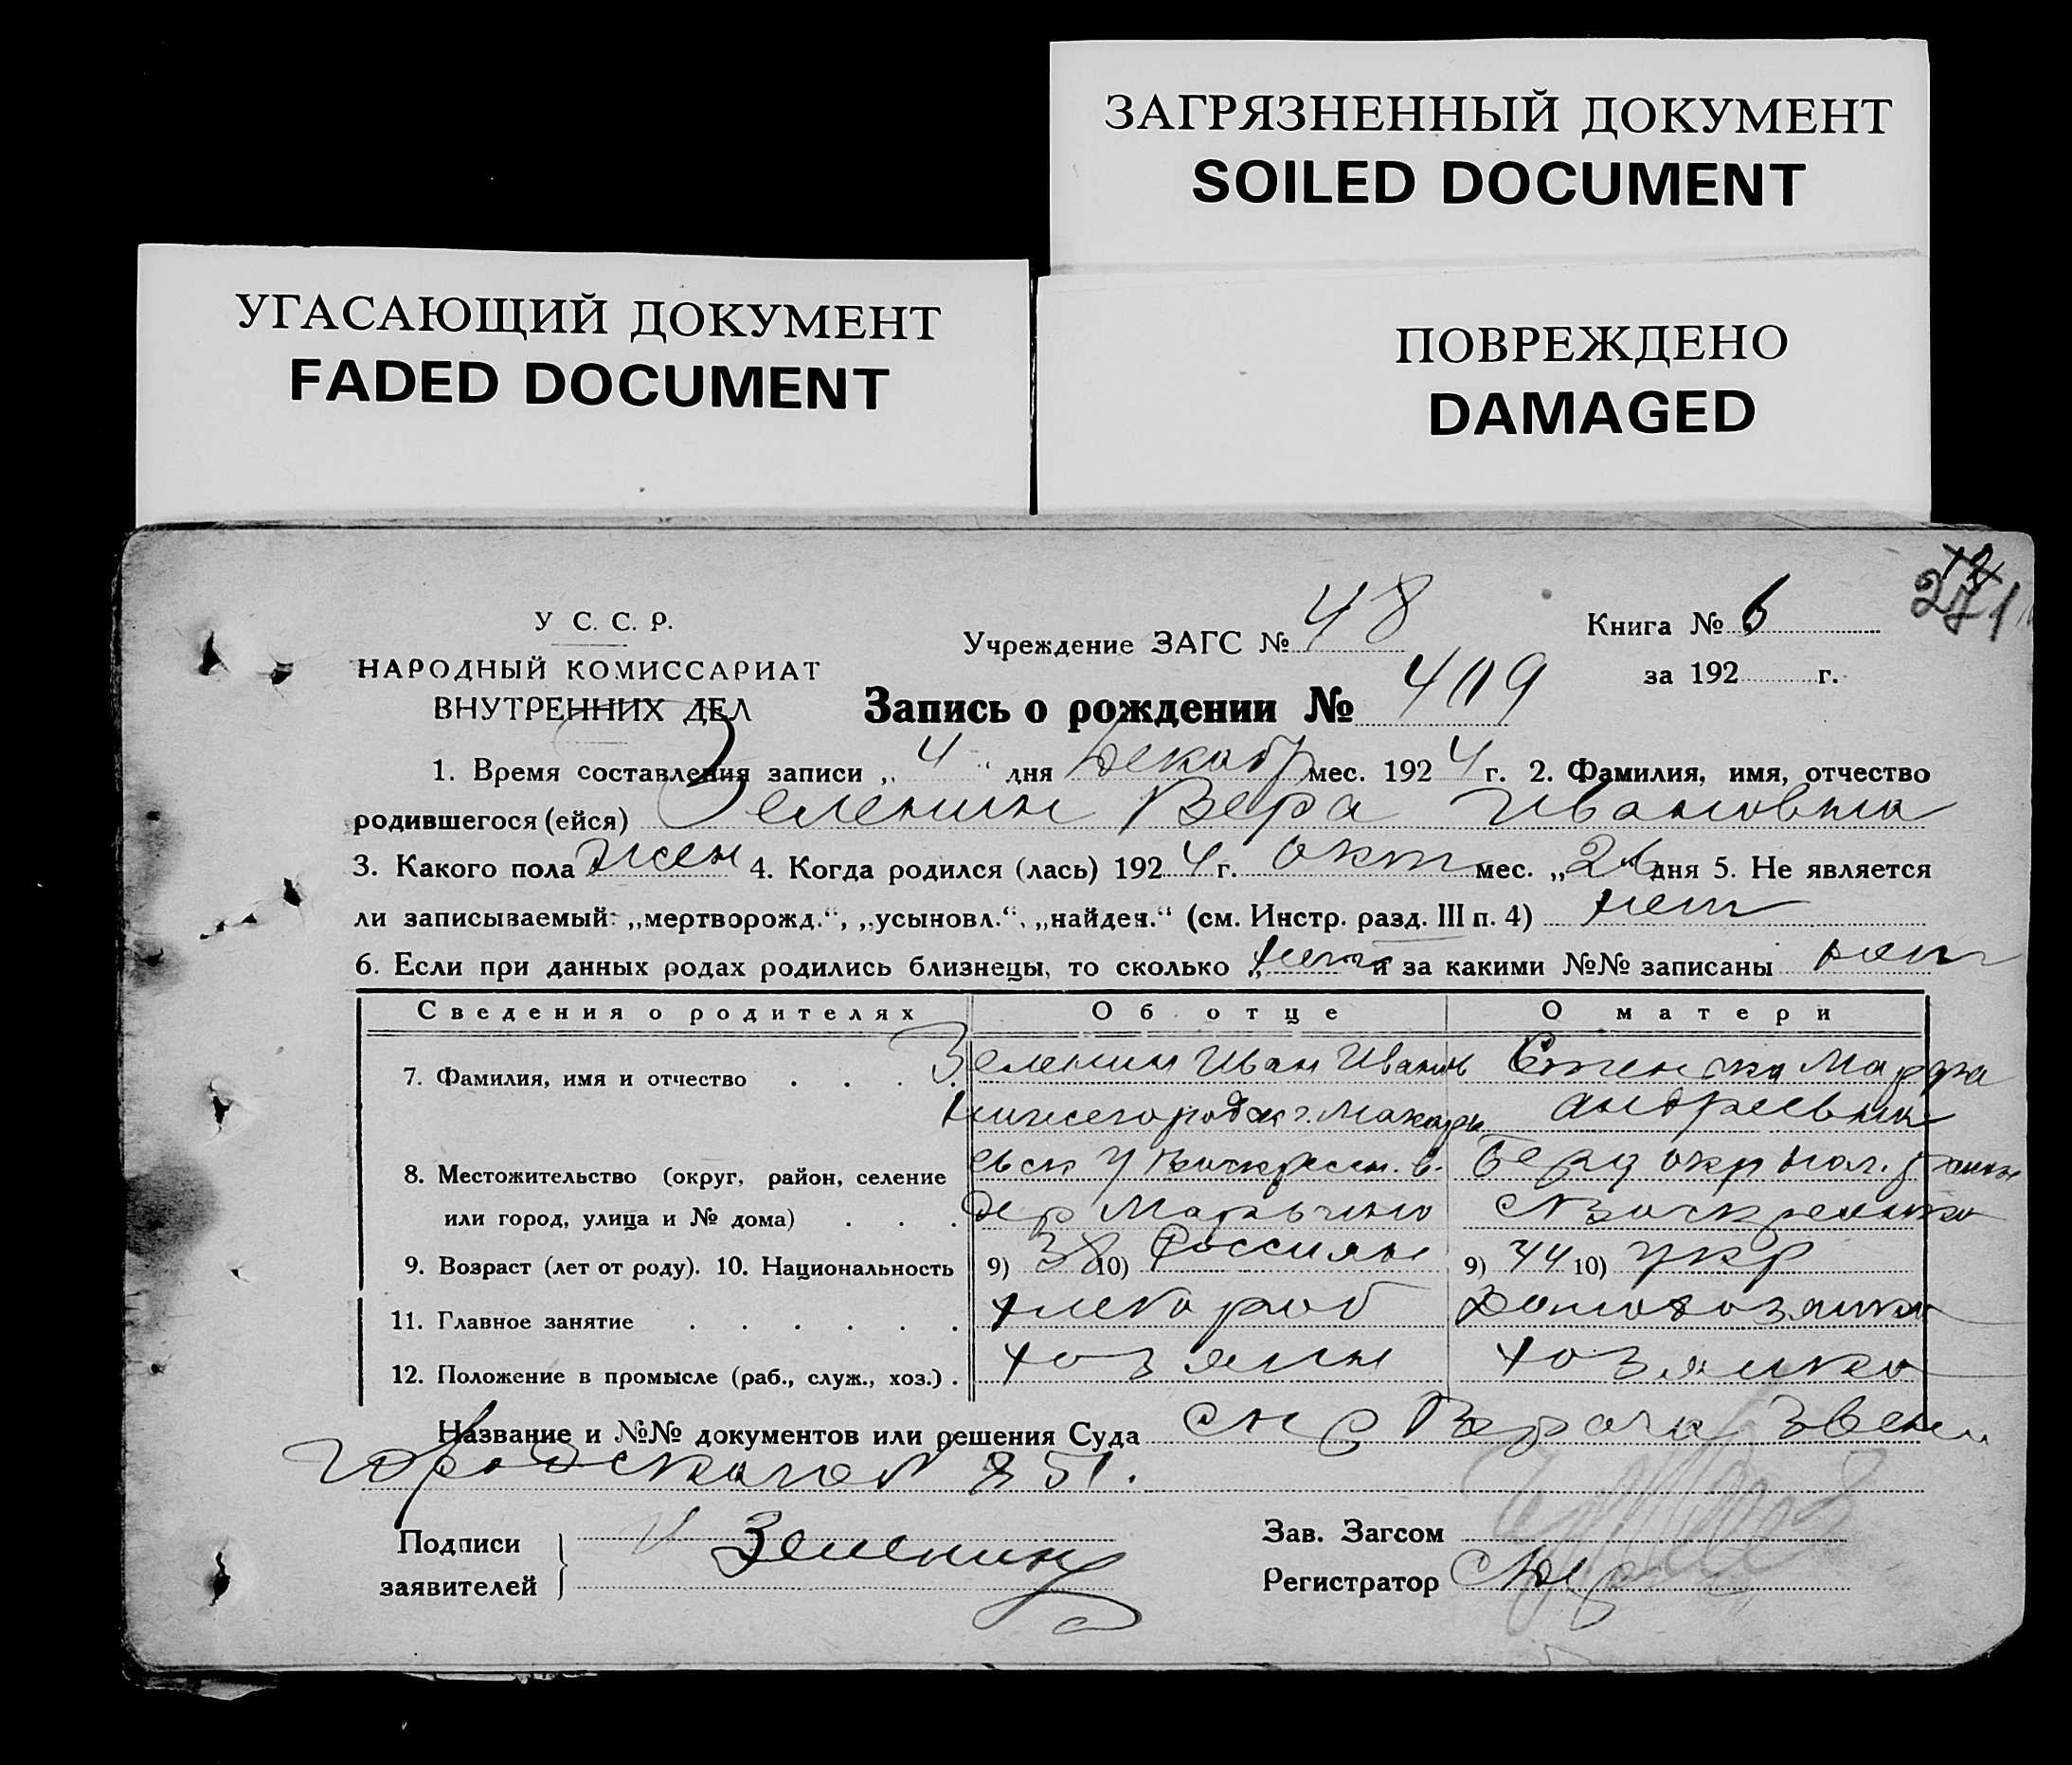 ЗАГРЯЗНЕННЫЙ ДОКУМЕНТ
SOILED DOCUMENT
УГАСАЮЩИЙ ДОКУМЕНТ
FADED DOCUMENT
ПОВРЕЖДЕНО
DAMAGED
У С. С. Р.
НАРОДНЫЙ КОМИССАРИАТ
ВНУТРЕННИХ ДЕЛ
Учреждение ЗАГС № 48
Книга № 6
за 192 г.
Запись о рождении № 409
1. Время составления записи „ 4 " дня Декабр мес. 192 4 г. 2. Фамилия, имя, отчество
родившегося (ейся) Зеленин Вера Ивановна
3. Какого пола жен 4. Когда родился (лась) 192 4 г. окт мес. „ 26 дня 5. Не является
ли записываемый: „мертворожд.“, „усыновл.“, „найден.“ (см. Инстр. разд. III п. 4) нет
6. Если при данных родах родились близнецы, то сколько нет и за какими №№ записаны нет
Сведения о родителях Об отце О матери
7. Фамилия, имя и отчество Зеленин Иван Иванов Марфа
Нижегородск г. Макарь Андреевна
8. Местожительство (округ, район, селение евск У Воскресен. в. Берд окр
или город, улица и № дома) дер Марьино
9. Возраст (лет от роду). 10. Национальность 9) 38 10) Россиян 9) 44 10) укр
11. Главное занятие хлебороб Домохозяйка
12. Положение в промысле (раб., служ., хоз.) хозяин хозяйка
Название и №№ документов или решения Суда
851.
Подписи
заявителей
И Зеленин
Зав. Загсом
Регистратор